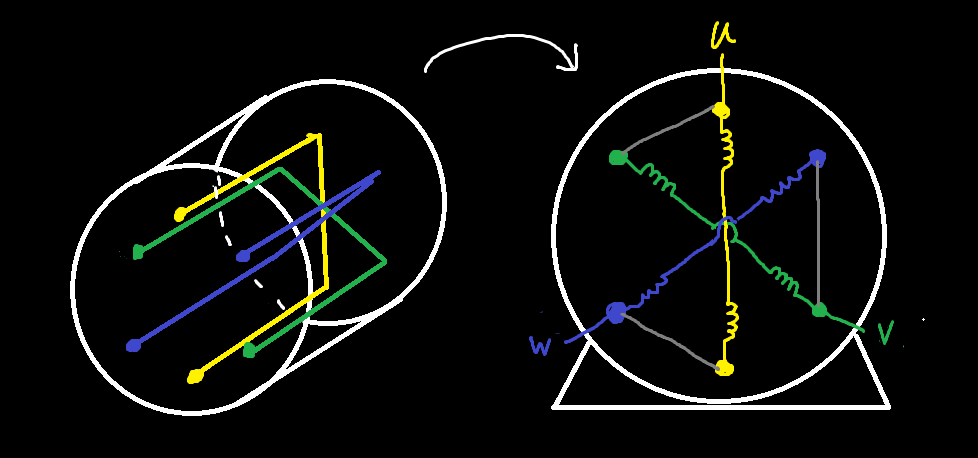 u
W
V